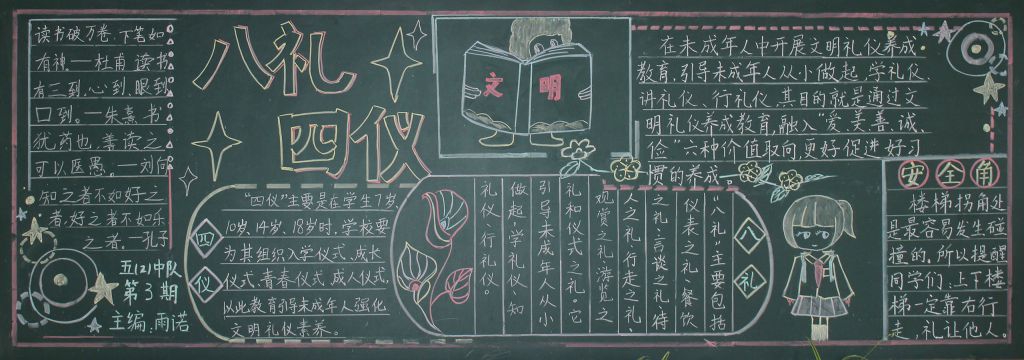 读书破万卷，下笔如
有神。—杜甫 读书
有三到，心到、眼到
口到。—朱熹 书
犹药也，善读之
可以医愚。—刘向
知之者不如好之
者，好之者不如乐
之者。—孔子
五(2)中队
第3期
主编：雨诺
八礼
四仪
文明
在未成年人中开展文明礼仪养成
教育，引导未成年人从小做起，学礼仪、
讲礼仪、行礼仪，其目的就是通过文
明礼仪养成教育，融入“爱、美、善、诚、
俭”六种价值取向，更好促进好习
惯的养成。
四仪
“四仪”主要是在学生7岁、
10岁、14岁、18岁时，学校要
为其组织入学仪式、成长
仪式、青春仪式、成人仪式，
以此教育引导未成年人强化
文明礼仪素养。
八礼
“八礼”主要包括
仪表之礼、餐饮
之礼、言谈之礼、待
人之礼、行走之礼
观赏之礼、游览之
礼和仪式之礼。它
引导未成年人从小
做起，学礼仪、知
礼仪、行礼仪。
安全角
楼梯拐角处
是最容易发生碰
撞的，所以提醒
同学们：上下楼
梯一定靠右行
走，礼让他人。